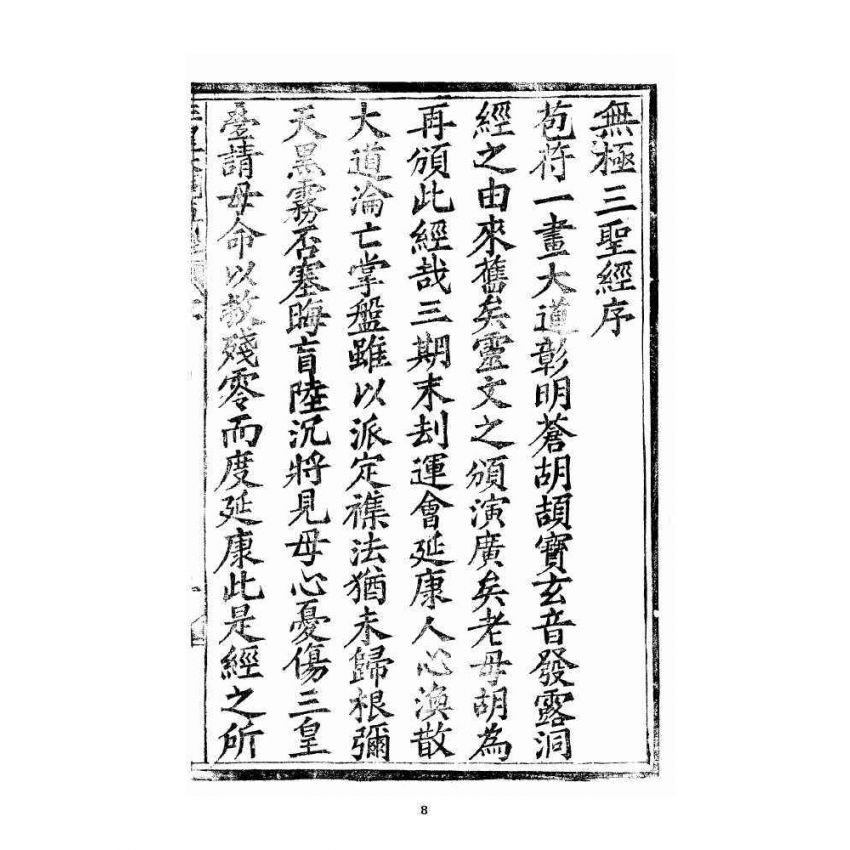 無極三聖經序
苞符一畫大道彰明蒼胡頡寶玄音發露洞
經之由來舊矣靈文之頒演廣矣老母胡為
再頒此經哉三期末刦運會延康人心渙散
大道淪亡掌盤雖以派定襍法猶未歸根彌
天黑霧否塞晦盲陸沉將見母心憂傷三皇
疊請母命以救殘零而度延康此是經之所
8